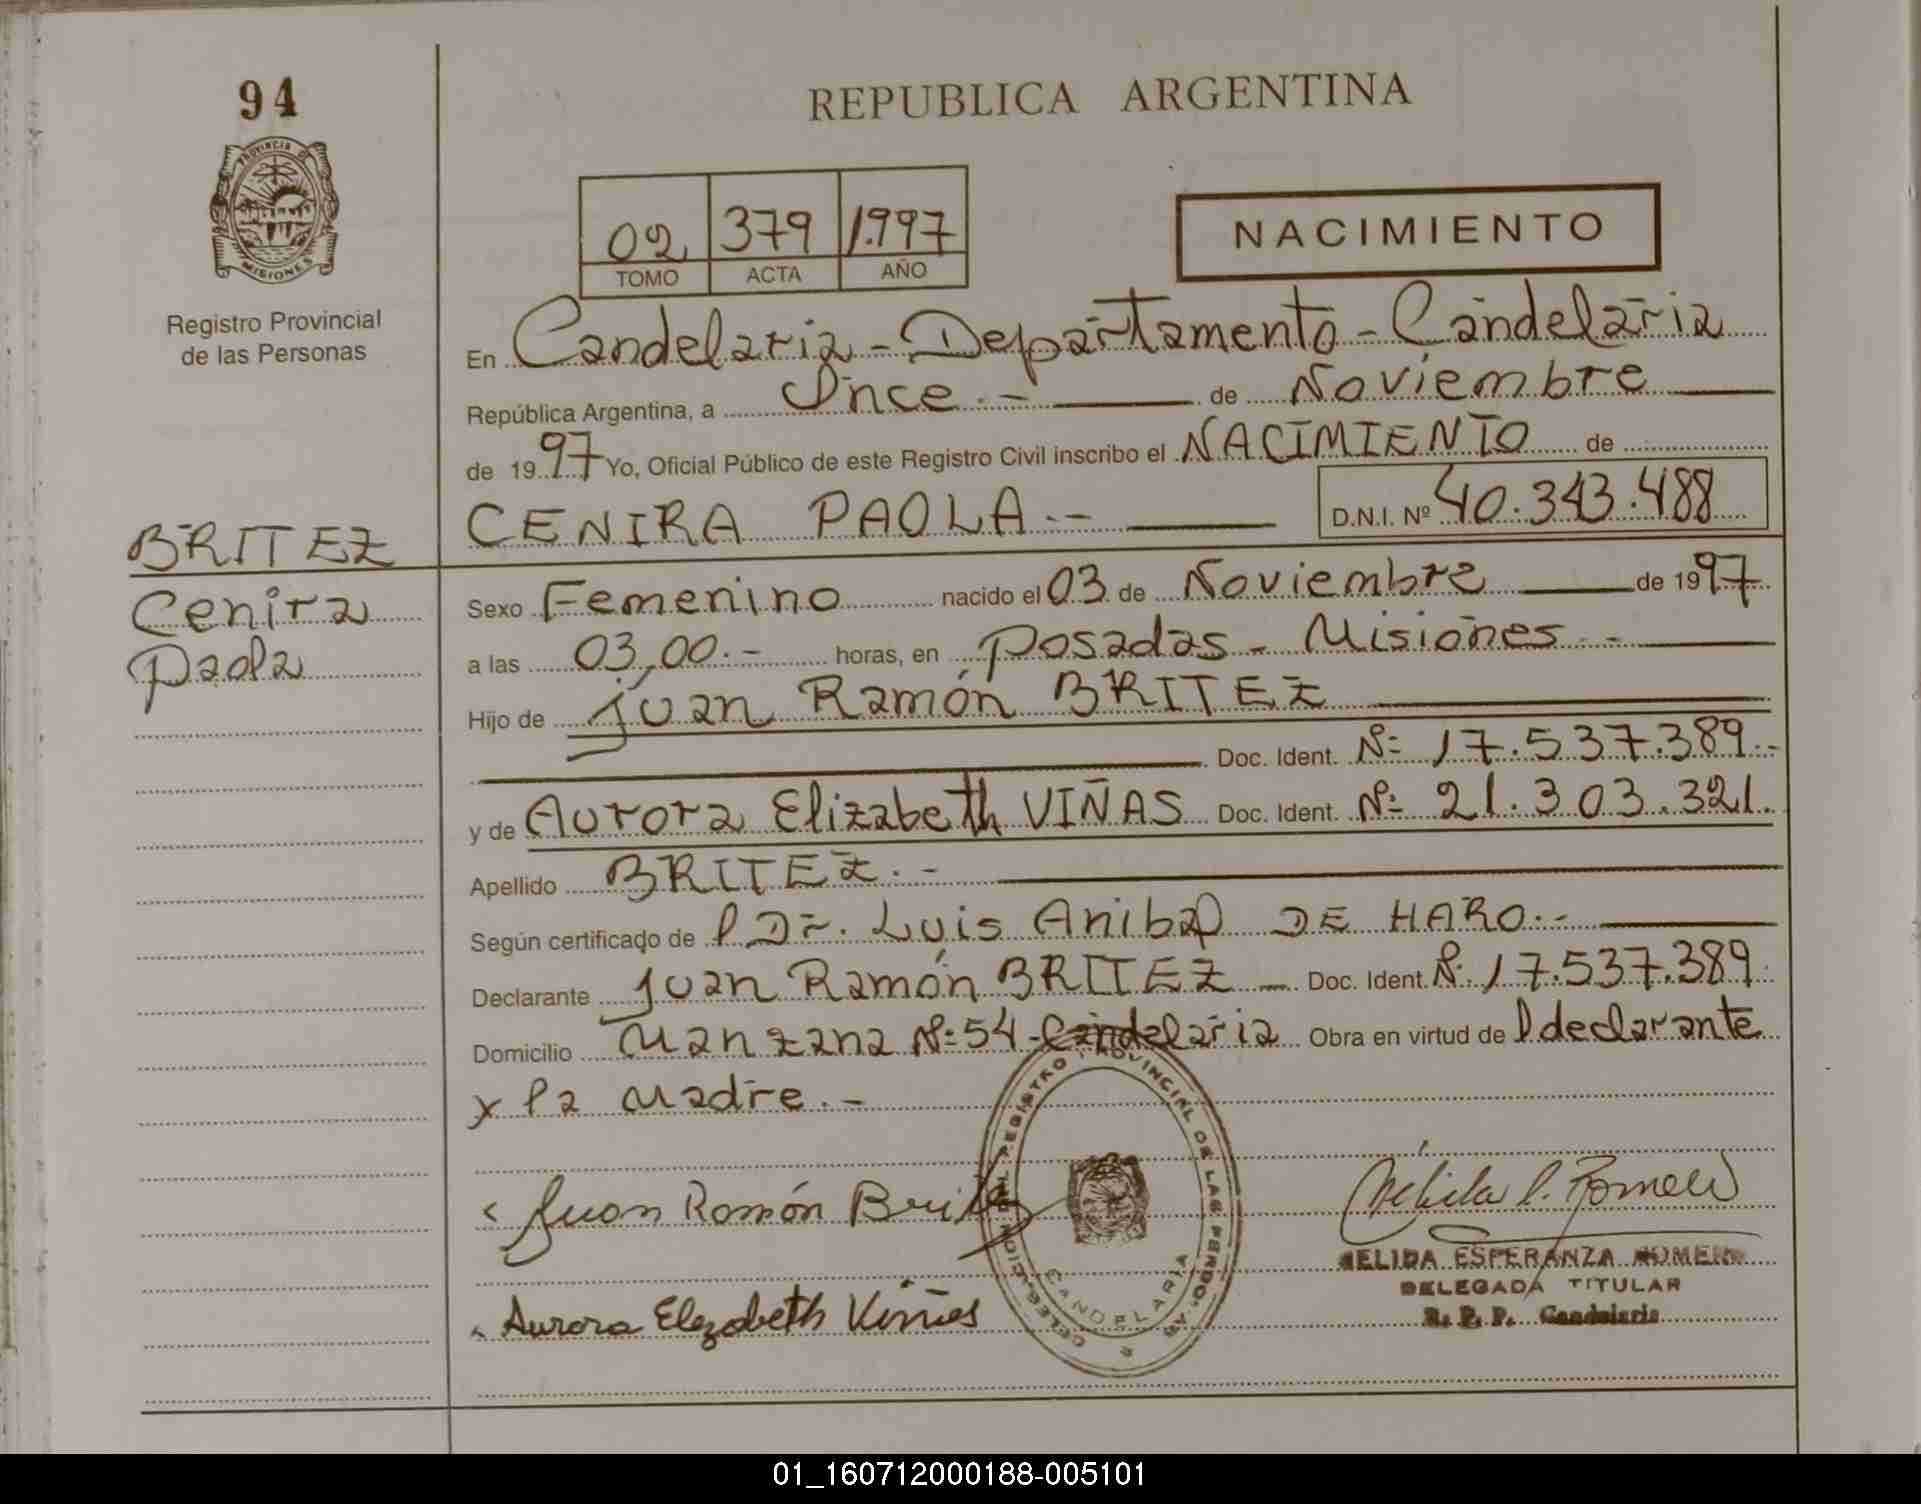 94
PROVINCIA DE
MISIONES
Registro Provincial
de las Personas
REPUBLICA ARGENTINA
02 379 1.997
TOMO ACTA AÑO
NACIMIENTO
En Candelaria - Departamento - Candelaria
República Argentina, a Once.- de Noviembre
de 1997 Yo, Oficial Público de este Registro Civil inscribo el NACIMIENTO de
CENIRA PAOLA.- D.N.I. Nº 40.343.488
BRITEZ
Cenira
Paola
Sexo Femenino nacido el 03 de Noviembre de 1997
a las 03,00.- horas, en Posadas - Misiones.-
Hijo de Juan Ramón BRITEZ
Doc. Ident. Nº 17.537.389.-
y de Aurora Elizabeth VIÑAS Doc. Ident. Nº 21.303.321.
Apellido BRITEZ.-
Según certificado de l Dr. Luis Anibal DE HARO.-
Declarante Juan Ramón BRITEZ Doc. Ident. Nº 17.537.389.
Domicilio Manzana Nº 54 - Candelaria Obra en virtud de l declarante
y la Madre.-
Juan Ramón Britez
Aurora Elezabeth Viñas
REGISTRO PROVINCIAL DE LAS PERSO
CANDELARIA
Nélida E. Romero
NELIDA ESPERANZA ROMERO
DELEGADA TITULAR
R. P. P. Candelaria
01_160712000188-005101